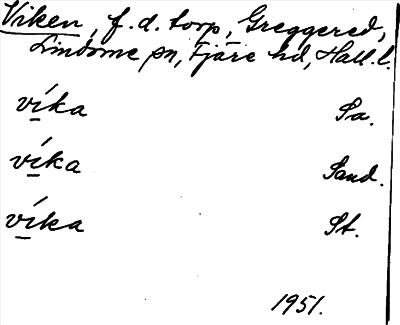 Viken, f. d. torp, Greggered,
Lindome sn, Fjäre hd, Hall. l.
víka Sa.
víka Sand.
víka St.
1951.